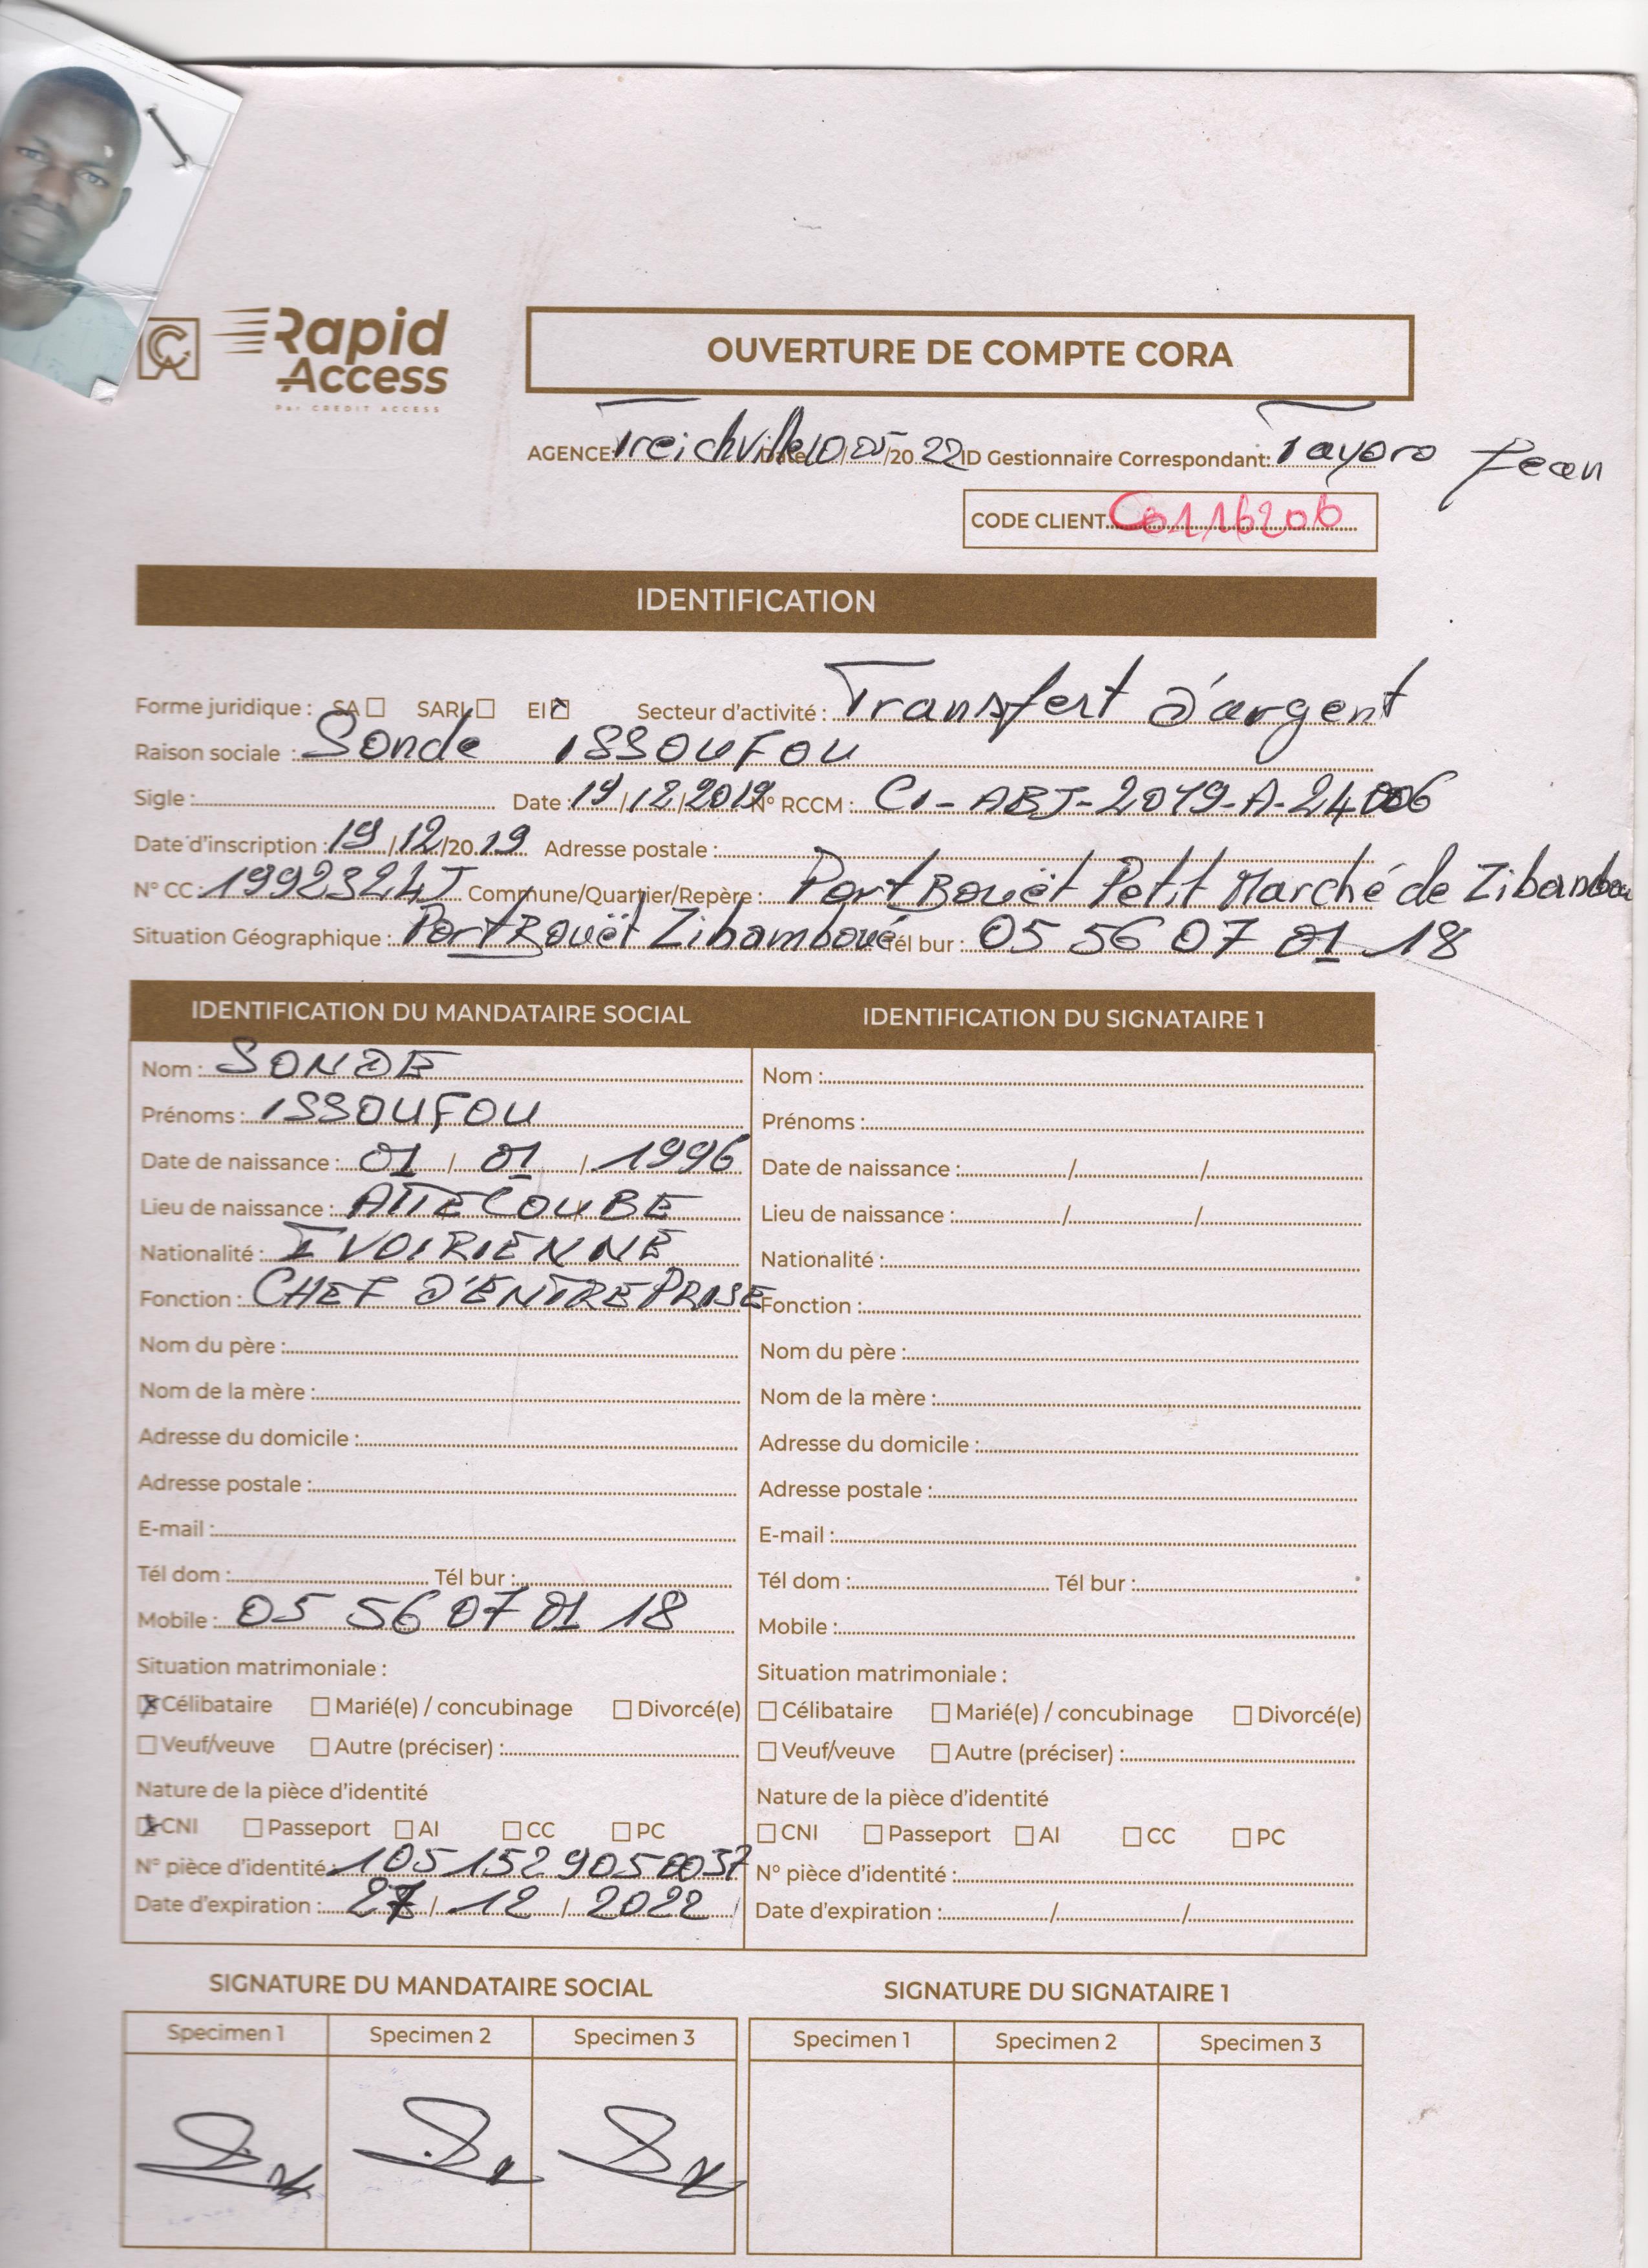 Rapid
Access
Par CREDIT ACCESS
OUVERTURE DE COMPTE CORA
AGENCE: Treichville Date 10/05/2022 ID Gestionnaire Correspondant: Tayoro Jean
CODE CLIENT C0116206
IDENTIFICATION
Forme juridique : SA SARL EI Secteur d'activité : Transfert d'argent
Raison sociale : Sonde ISSOUFOU
Sigle : Date : 19/12/2019 N° RCCM : CI-ABJ-2019-A-24006
Date d'inscription : 19/12/2019 Adresse postale :
N° CC : 1992324J Commune/Quartier/Repère : Port Bouët Petit Marché de
Situation Géographique : Port Bouët Zibamboué Tél bur : 05 56 07 01 18
IDENTIFICATION DU MANDATAIRE SOCIAL
Nom : SONDE
Prénoms : ISSOUFOU
Date de naissance : 01 / 01 / 1996
Lieu de naissance : ATTECOUBE
Nationalité : IVOIRIENNE
Fonction : CHEF D'ENTREPRISE
Nom du père :
Nom de la mère :
Adresse du domicile :
Adresse postale :
E-mail :
Tél dom : Tél bur :
Mobile : 05 56 07 01 18
Situation matrimoniale :
Célibataire Marié(e) / concubinage Divorcé(e)
Veuf/veuve Autre (préciser) :
Nature de la pièce d'identité
CNI Passeport AI CC PC
N° pièce d'identité : 1051529050037
Date d'expiration : 27 / 12 / 2022
IDENTIFICATION DU SIGNATAIRE 1
Nom :
Prénoms :
Date de naissance : / /
Lieu de naissance : / /
Nationalité :
Fonction :
Nom du père :
Nom de la mère :
Adresse du domicile :
Adresse postale :
E-mail :
Tél dom : Tél bur :
Mobile :
Situation matrimoniale :
Célibataire Marié(e) / concubinage Divorcé(e)
Veuf/veuve Autre (préciser) :
Nature de la pièce d'identité
CNI Passeport AI CC PC
N° pièce d'identité :
Date d'expiration : / /
SIGNATURE DU MANDATAIRE SOCIAL
Specimen 1 Specimen 2 Specimen 3
SIGNATURE DU SIGNATAIRE 1
Specimen 1 Specimen 2 Specimen 3